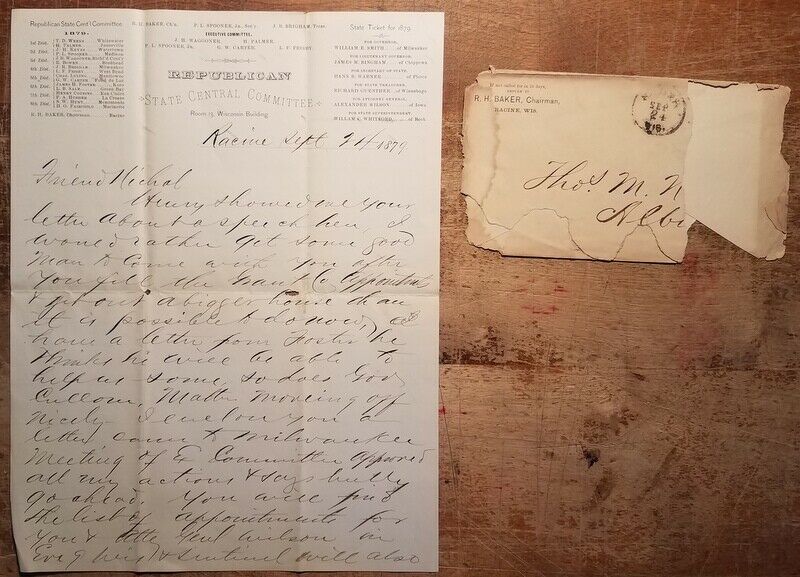 Republican State Cent'l Committee
1879.
1st Dist. T. D. WEEKS Whitewater
H. PALMER Janesville
J. H. KEYES Watertown
P. L. SPOONER Madison
Boscobel
J. H. BRIGHAM Milwaukee
L. F. FRISBY West Bend
G. W. CARTER Fond du Lac
JAMES H. FOSTER
Green Bay
HENRY COUSINS Eau Claire
La Crosse
R. H. BAKER, Chairman, Racine
R. H. BAKER, Ch'n. P. L. SPOONER, Jr., Sec'y. J. H. BRIGHAM, Treas.
EXECUTIVE COMMITTEE.
J. H. WAGGONER H. PALMER.
P. L. SPOONER, Jr. G. W. CARTER. L. F. FRISBY
REPUBLICAN
STATE CENTRAL COMMITTEE
Wisconsin Building.
State Ticket for 1879.
FOR GOVERNOR,
WILLIAM E. SMITH of Milwaukee
FOR LIEUTENANT GOVERNOR,
JAMES M. BINGHAM of Chippewa
FOR SECRETARY OF STATE,
HANS B. WARNER of Pierce
FOR STATE TREASURER,
RICHARD GUENTHER of Winnebago
FOR ATTORNEY GENERAL,
ALEXANDER WILSON of Iowa
FOR STATE SUPERINTENDENT,
WILLIAM C. WHITFORD, of Rock
Racine Sept 24 1879
Friend Nichol
Henry showed me your
letter about a speech here, I
would rather get some good
man to come with you after
you fill the appointment
& get out a bigger house than
it is possible to do now,
have a letter from Foster he
thinks he will be able to
help us some, so does Gov
Cullom, Matters moving off
nicely I enclose you a
letter, came to Milwaukee
Meeting of Ex Committee approved
all my actions & says bully
go ahead, You will find
the list of appointments for
you & Genl Wilson in
Eve g Wis & Sentinel will also
If not called for in 10 days,
RETURN TO
R. H. BAKER, Chairman,
RACINE, WIS.
SEP
24
WIS.
Thos. M. N
Albi